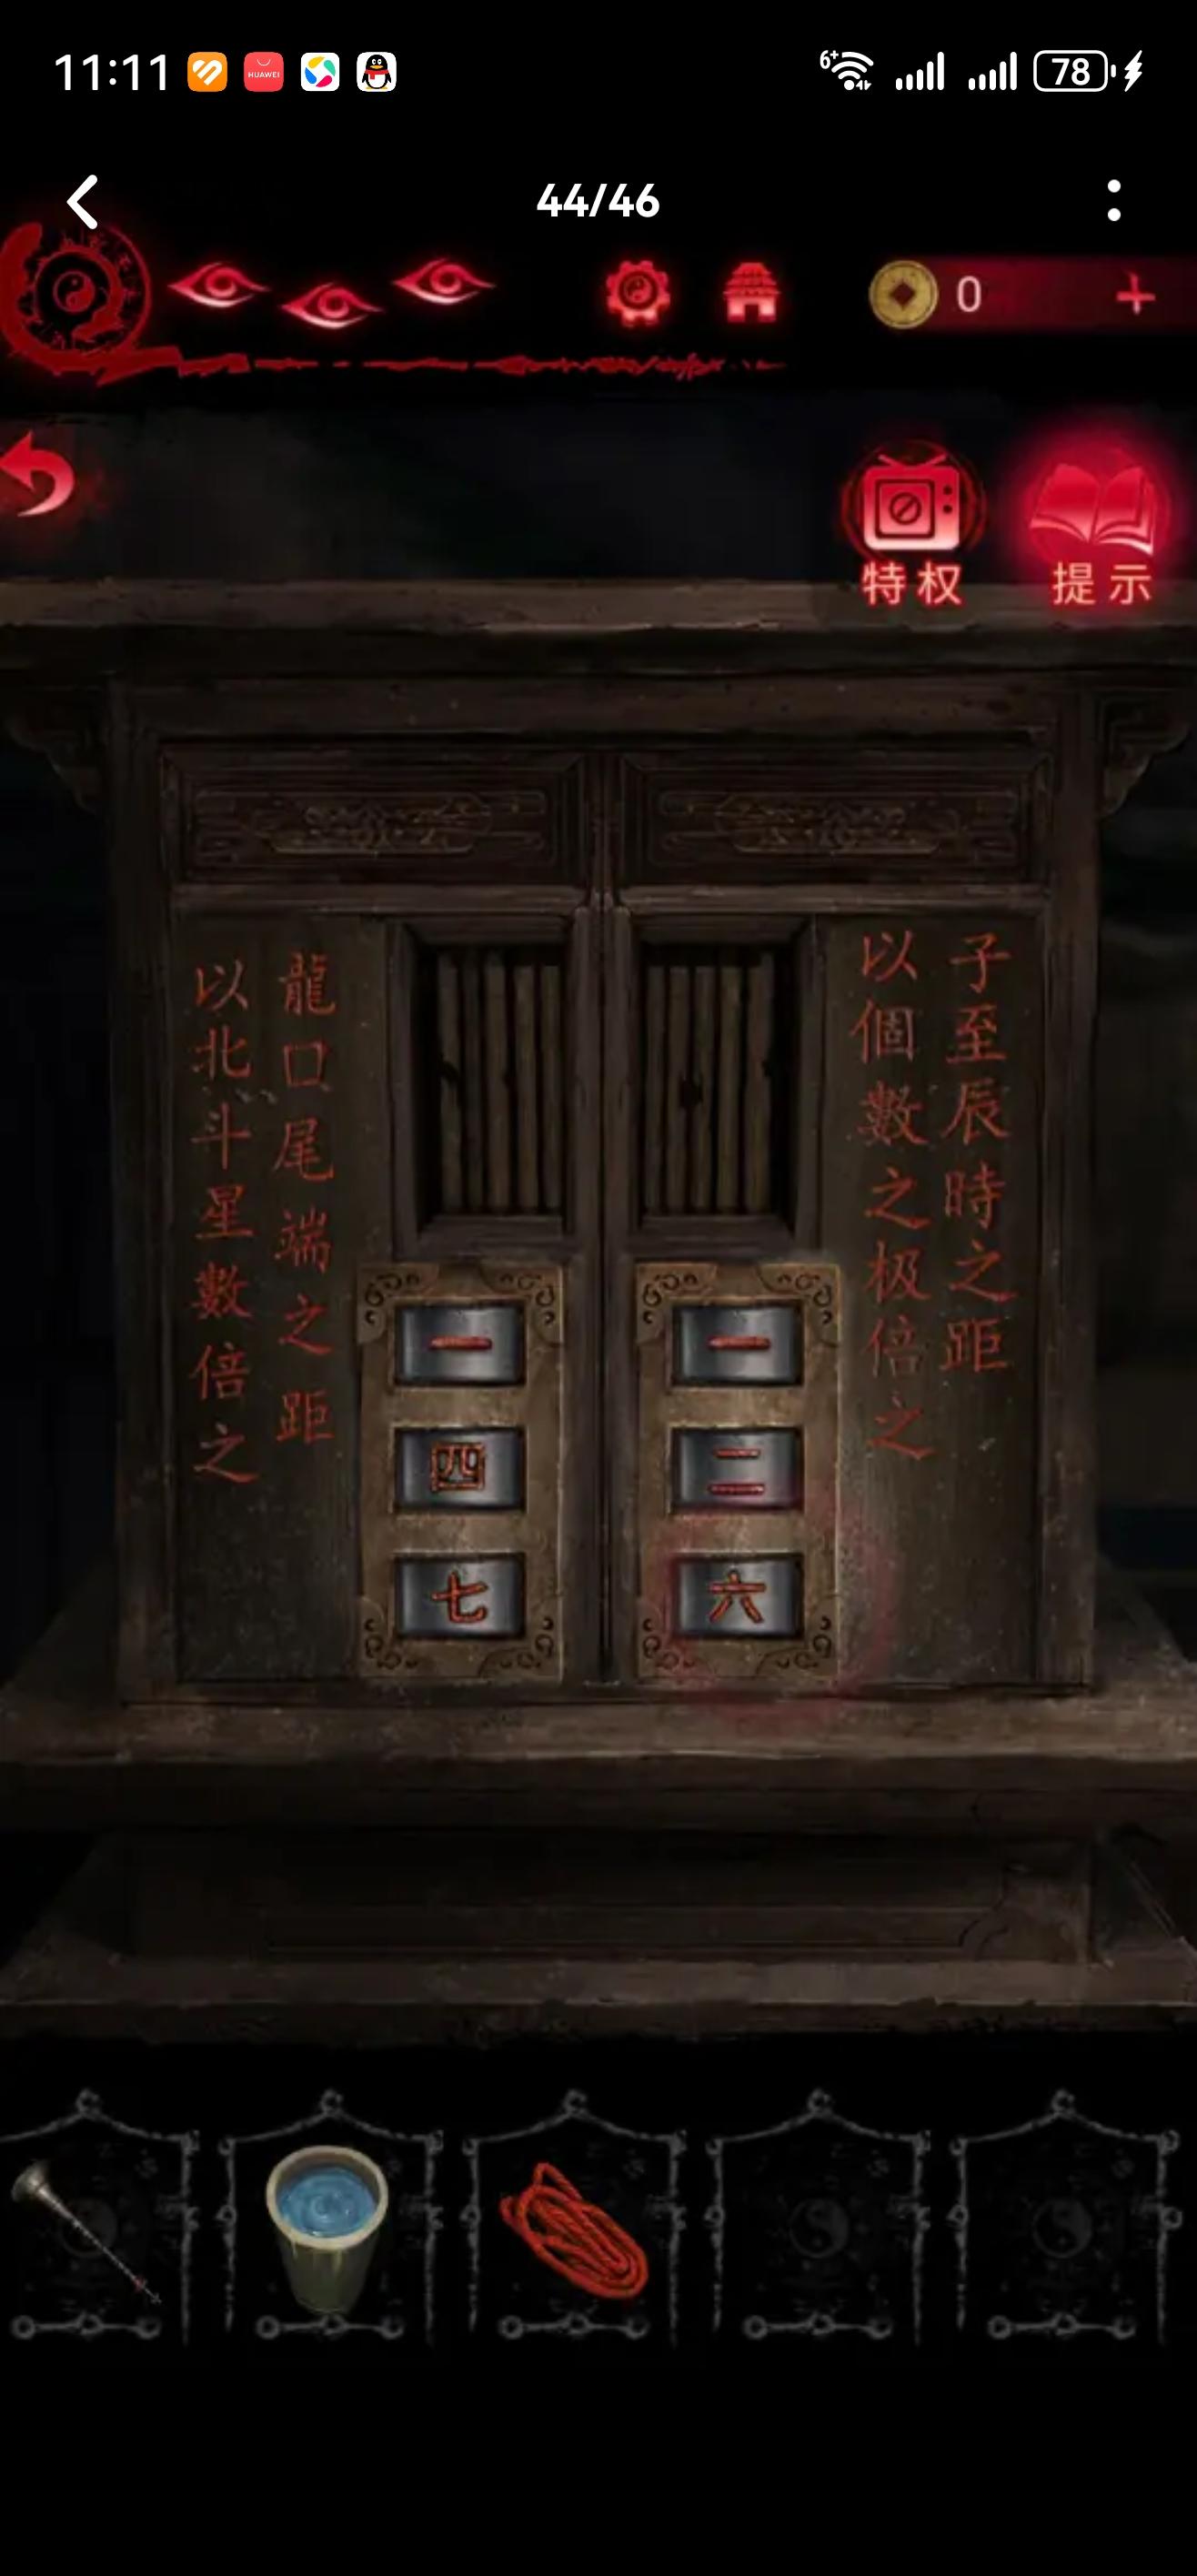 11:11
HUAWEI
6+
78
44/46
0
特权
提示
子至辰時之距
以個數之极倍之
龍口尾端之距
以北斗星數倍之
一
一
四
二
七
六